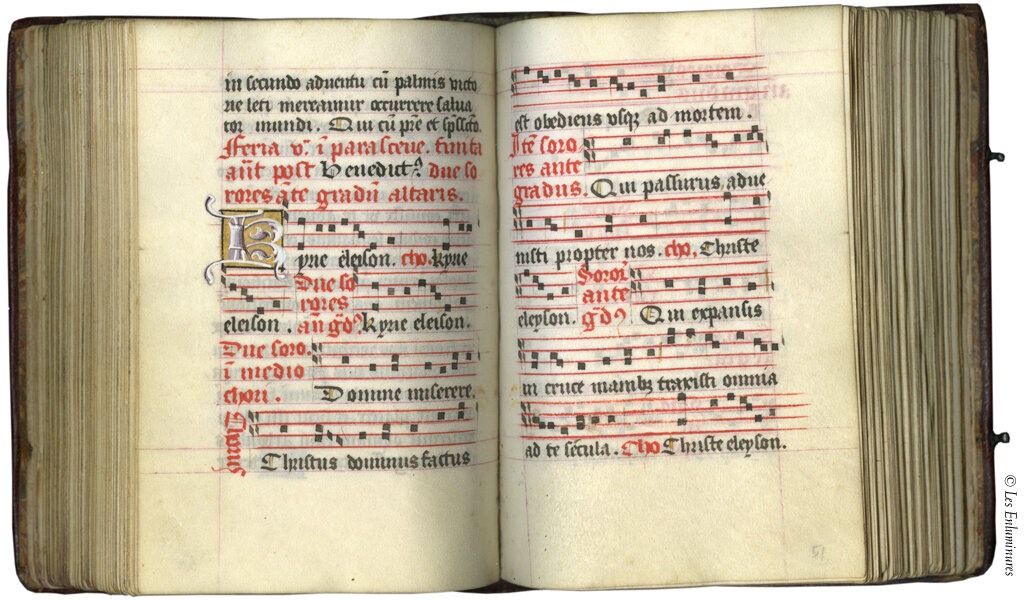 in secundo aduentu cū palmis victo
rie leti mereamur occurrere salua
tor mundi. Qui cū p̄re et sp̄sct̄o.
Feria v̄. ī parasceue. finita
ant̄ post Benedictꝰ due so
rores āte gradū altaris.
Kyrie eleison. cho. kyrie
Due so
rores
eleison. an̄ gd̄ꝰ kyrie eleison.
Due soro.
ī medio
chori. Domine miserere.
Chorus
Christus dominus factus
est obediens vsqꝫ ad mortem.
Itē soro
res ante
gradus. Qui passurus adue
nisti propter nos. cho. Christe
Soror̄
ante
eleyson. gd̄ꝰ Qui expansis
in cruce manibꝫ traxisti omnia
ad te sēcula. Cho Christe eleyson.
51
© Les Enluminures